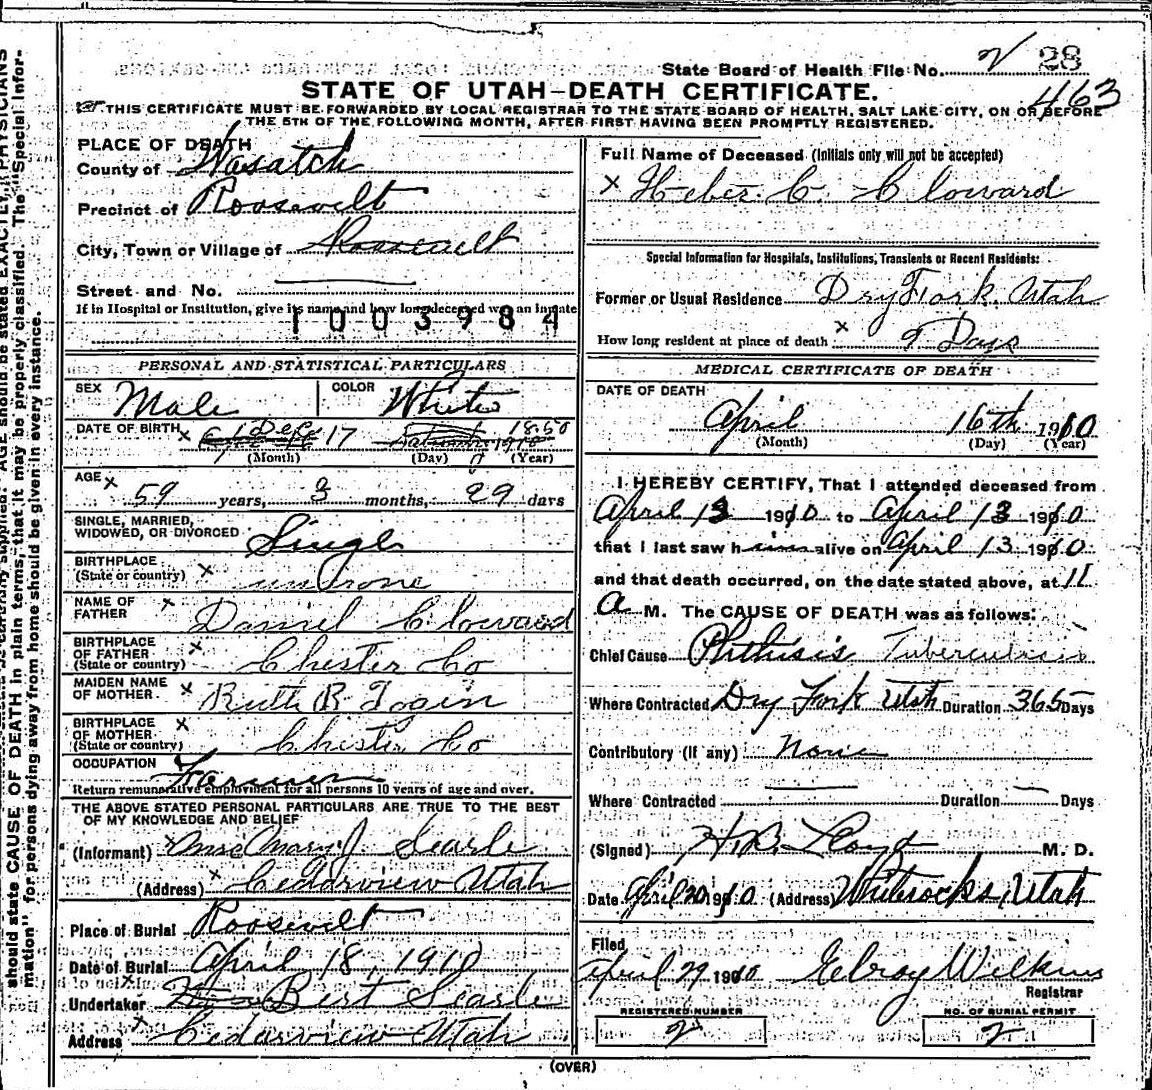 State Board of Health File No. 2 28
463
STATE OF UTAH—DEATH CERTIFICATE.
THIS CERTIFICATE MUST BE FORWARDED BY LOCAL REGISTRAR TO THE STATE BOARD OF HEALTH, SALT LAKE CITY, ON OR BEFORE
THE 5TH OF THE FOLLOWING MONTH, AFTER FIRST HAVING BEEN PROMPTLY REGISTERED.
PLACE OF DEATH
County of Wasatch
Precinct of Roosevelt
City, Town or Village of Roosevelt
Street and No.
If in Hospital or Institution, give its name and how long deceased was an inmate
1003984
PERSONAL AND STATISTICAL PARTICULARS
SEX Male COLOR White
DATE OF BIRTH Dec 17 1850
(Month) (Day) (Year)
AGE 59 years, 3 months, 29 days
SINGLE, MARRIED,
WIDOWED, OR DIVORCED Single
BIRTHPLACE
(State or country)
NAME OF
FATHER Daniel Cloward
BIRTHPLACE
OF FATHER
(State or country) Chester Co
MAIDEN NAME
OF MOTHER Ruth R
BIRTHPLACE
OF MOTHER
(State or country) Chester Co
OCCUPATION Farmer
Return remunerative employment for all persons 10 years of age and over.
THE ABOVE STATED PERSONAL PARTICULARS ARE TRUE TO THE BEST
OF MY KNOWLEDGE AND BELIEF
(Informant) Mary J Searle
(Address) Cedarview Utah
Place of Burial Roosevelt
Date of Burial April 18, 1910
Undertaker Bert Searle
Address Cedarview Utah
Full Name of Deceased (Initials only will not be accepted)
x Heber C. Cloward
Special Information for Hospitals, Institutions, Transients or Recent Residents:
Former or Usual Residence Dry Fork. Utah
How long resident at place of death x 9 Days
MEDICAL CERTIFICATE OF DEATH
DATE OF DEATH
April 16th 1910
(Month) (Day) (Year)
I HEREBY CERTIFY, That I attended deceased from
April 13 1910 to April 13 1910
that I last saw him alive on April 13 1910
and that death occurred, on the date stated above, at 11
a M. The CAUSE OF DEATH was as follows:
Chief Cause Phthisis Tuberculosis
Where Contracted Dry Fork Utah Duration 365 Days
Contributory (if any) None
Where Contracted Duration Days
(Signed) H. B. Lloyd M. D.
Date April 20 1910 (Address) Whiterocks, Utah
Filed
April 29 1910 Elroy Wilkins
Registrar
REGISTERED NUMBER
2
NO. OF BURIAL PERMIT
2
(OVER)
should state CAUSE OF DEATH in plain terms, that it may be properly classified. The "Special Infor-
mation" for persons dying away from home should be given in every instance.